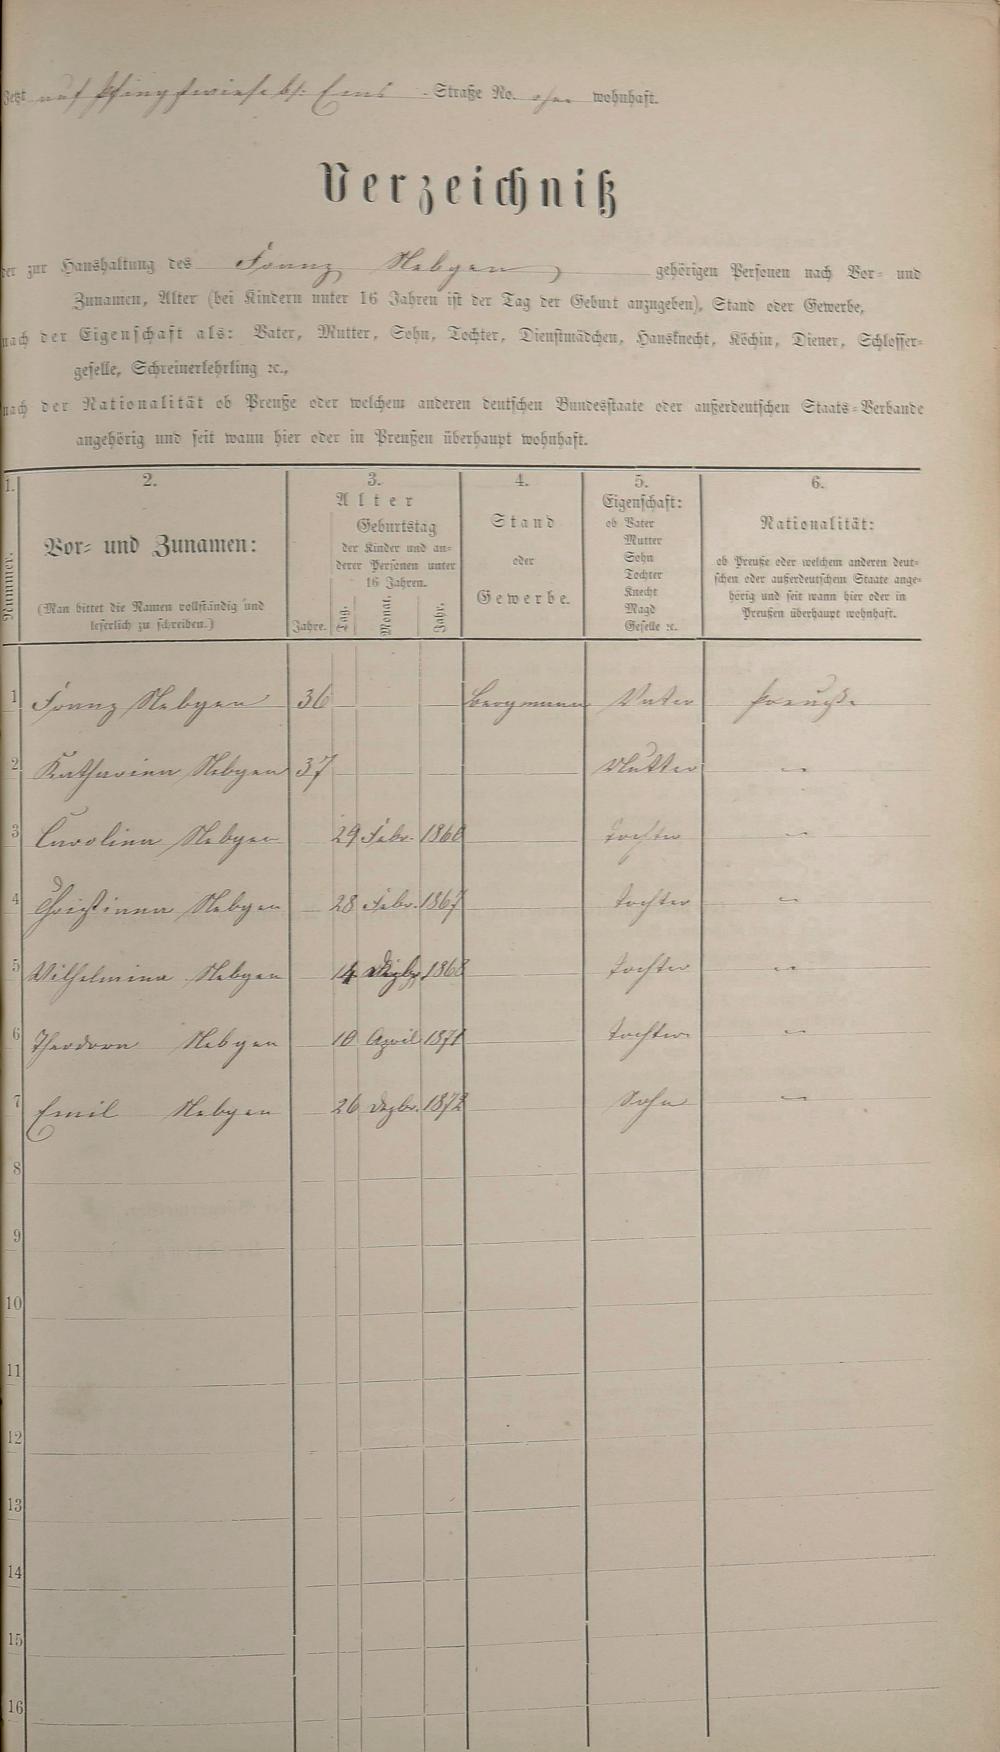 Jetzt auf Pfingstwiese bs. Ems -Straße No. ohne wohnhaft.
Verzeichniß
der zur Haushaltung des Franz Nebgen gehörigen Personen nach Vor- und
Zunamen, Alter (bei Kindern unter 16 Jahren ist der Tag der Geburt anzugeben), Stand oder Gewerbe,
nach der Eigenschaft als: Vater, Mutter, Sohn, Tochter, Dienstmädchen, Hausknecht, Köchin, Diener, Schlosser-
geselle, Schreinerlehrling ꝛc.,
nach der Nationalität ob Preuße oder welchem anderen deutschen Bundesstaate oder außerdeutschen Staats-Verbande
angehörig und seit wann hier oder in Preußen überhaupt wohnhaft.
1.
Nummer.
2.
Vor- und Zunamen:
(Man bittet die Namen vollständig und
leserlich zu schreiben.)
3.
Alter
Geburtstag
der Kinder und an-
derer Personen unter
16 Jahren.
Jahre. Tag. Monat. Jahr.
4.
Stand
oder
Gewerbe.
5.
Eigenschaft:
ob Vater
Mutter
Sohn
Tochter
Knecht
Magd
Geselle ꝛc.
6.
Nationalität:
ob Preuße oder welchem anderen deut-
schen oder außerdeutschem Staate ange-
hörig und seit wann hier oder in
Preußen überhaupt wohnhaft.
1 Franz Nebgen 36 Bergmann Vater Preuße
2 Katharina Nebgen 37 Mutter "
3 Carolina Nebgen 29 Febr. 1860 Tochter "
4 Christiana Nebgen 28 Febr. 1867 Tochter "
5 Wilhelmina Nebgen 14 Dezbr. 1868 Tochter "
6 Theodora Nebgen 10 April 1871 Tochter "
7 Emil Nebgen 26 Dezbr. 1872 Sohn "
8
9
10
11
12
13
14
15
16